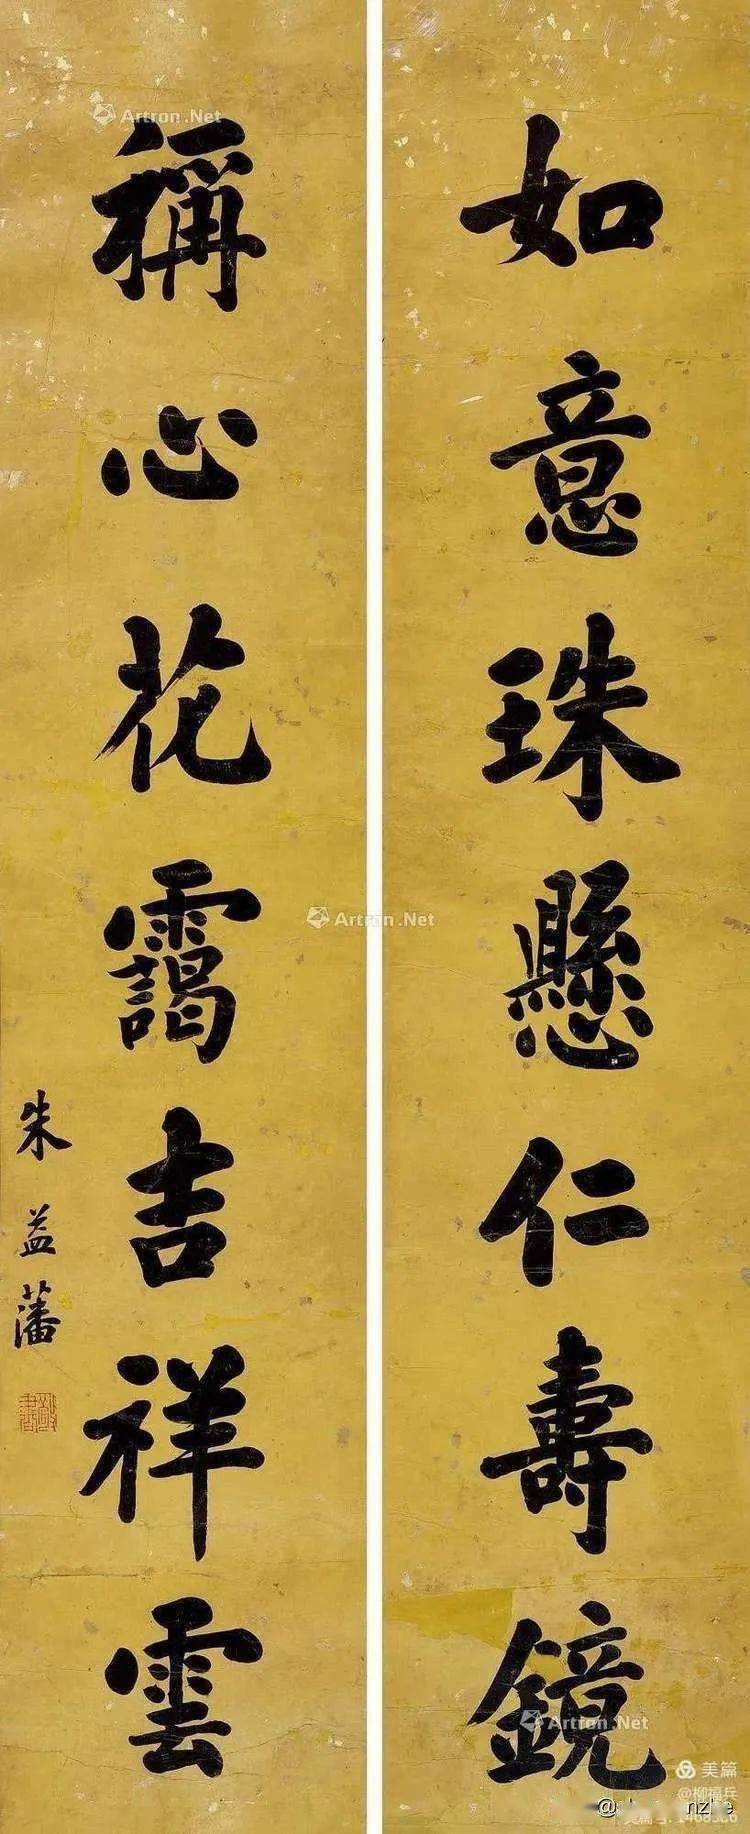 如意珠懸仁壽鏡
稱心花靄吉祥雲
朱益藩
Artron.Net
Artron.Net
Artron.Net
美篇
@柳福兵